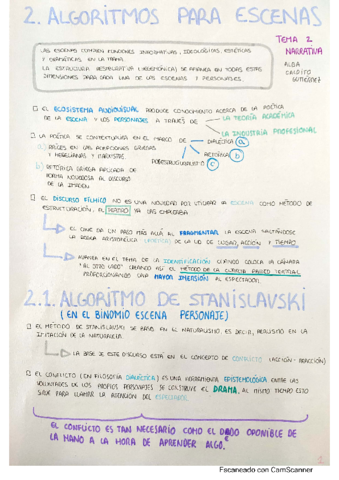 2. ALGORITMOS PARA ESCENAS
TEMA 2
NARRATIVA
ALBA
GUTIÉRREZ
LAS ESCENAS CUMPLEN FUNCIONES INFORMATIVAS, IDEOLÓGICAS, ESTÉTICAS
Y DRAMÁTICAS EN LA TRAMA.
LA ESTRUCTURA (HEGEMÓNICA) SE APOYA EN TODAS ESTAS
DIMENSIONES PARA CADA UNA DE LAS ESCENAS Y PERSONAJES.
EL ECOSISTEMA AUDIOVISUAL PRODUCE CONOCIMIENTO ACERCA DE LA POÉTICA
DE LA ESCENA Y LOS PERSONAJES A TRAVÉS DE LA TEORÍA ACADÉMICA
LA INDUSTRIA PROFESIONAL
LA POÉTICA SE CONTEXTUALIZA EN EL MARCO DE DIALÉCTICA a
a) RAÍCES EN LAS ACEPCIONES GRIEGAS
Y HEGELIANAS Y MARXISTAS
RETÓRICA b
POSESTRUCTURALISTA c
b) RETÓRICA GRIEGA APLICADA DE
FORMA NOVEDOSA AL DISCURSO
DE LA IMAGEN
EL DISCURSO FÍLMICO NO ES UNA NOVEDAD POR UTILIZAR LA ESCENA COMO MÉTODO DE
ESTRUCTURACIÓN, EL TEATRO YA LAS EMPLEABA
EL CINE DA UN PASO MÁS ALLÁ AL FRAGMENTAR LA ESCENA SALTÁNDOSE
LA REGLA ARISTOTÉLICA (POÉTICA) DE LA UD DE LUGAR, ACCIÓN Y TIEMPO
AHONDA EN EL TEMA DE LA IDENTIFICACIÓN CUANDO COLOCA LA CÁMARA
"AL OTRO LADO" CREANDO ASÍ EL MÉTODO DE LA CUARTA PARED TEATRAL
PROPORCIONANDO UNA MAYOR INMERSIÓN AL ESPECTADOR
2.1. ALGORITMO DE STANISLAVSKI
(EN EL BINOMIO ESCENA PERSONAJE)
EL MÉTODO DE STANISLAVSKI SE BASA EN EL NATURALISMO, ES DECIR, REALISMO EN LA
IMITACIÓN DE LA NATURALEZA
LA BASE DE ESTE DISCURSO ESTÁ EN EL CONCEPTO DE CONFLICTO (ACCIÓN - REACCIÓN)
EL CONFLICTO (EN FILOSOFÍA DIALÉCTICA) ES UNA HERRAMIENTA EPISTEMOLÓGICA ENTRE LAS
VOLUNTADES DE LOS PROPIOS PERSONAJES SE CONSTRUYE EL DRAMA, AL MISMO TIEMPO ESTO
SIRVE PARA LLAMAR LA ATENCIÓN DEL ESPECTADOR
EL CONFLICTO ES TAN NECESARIO COMO EL DEDO OPONIBLE DE
LA MANO A LA HORA DE APRENDER ALGO.
1
Escaneado con CamScanner